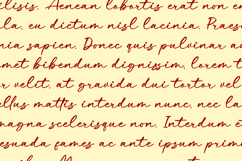 cilisis. Aenean lobortis erat non e
a, eu dictum nisl lacinia. Praes
n sapien. Donec quis pulvinar a
met bibendum dignissim, lorem
r velit, at gravida dui tortor vel
ellus mattis interdum nunc, nec la
magna scelerisque non. Interdum e
esuada fames ac ante ipsum prim